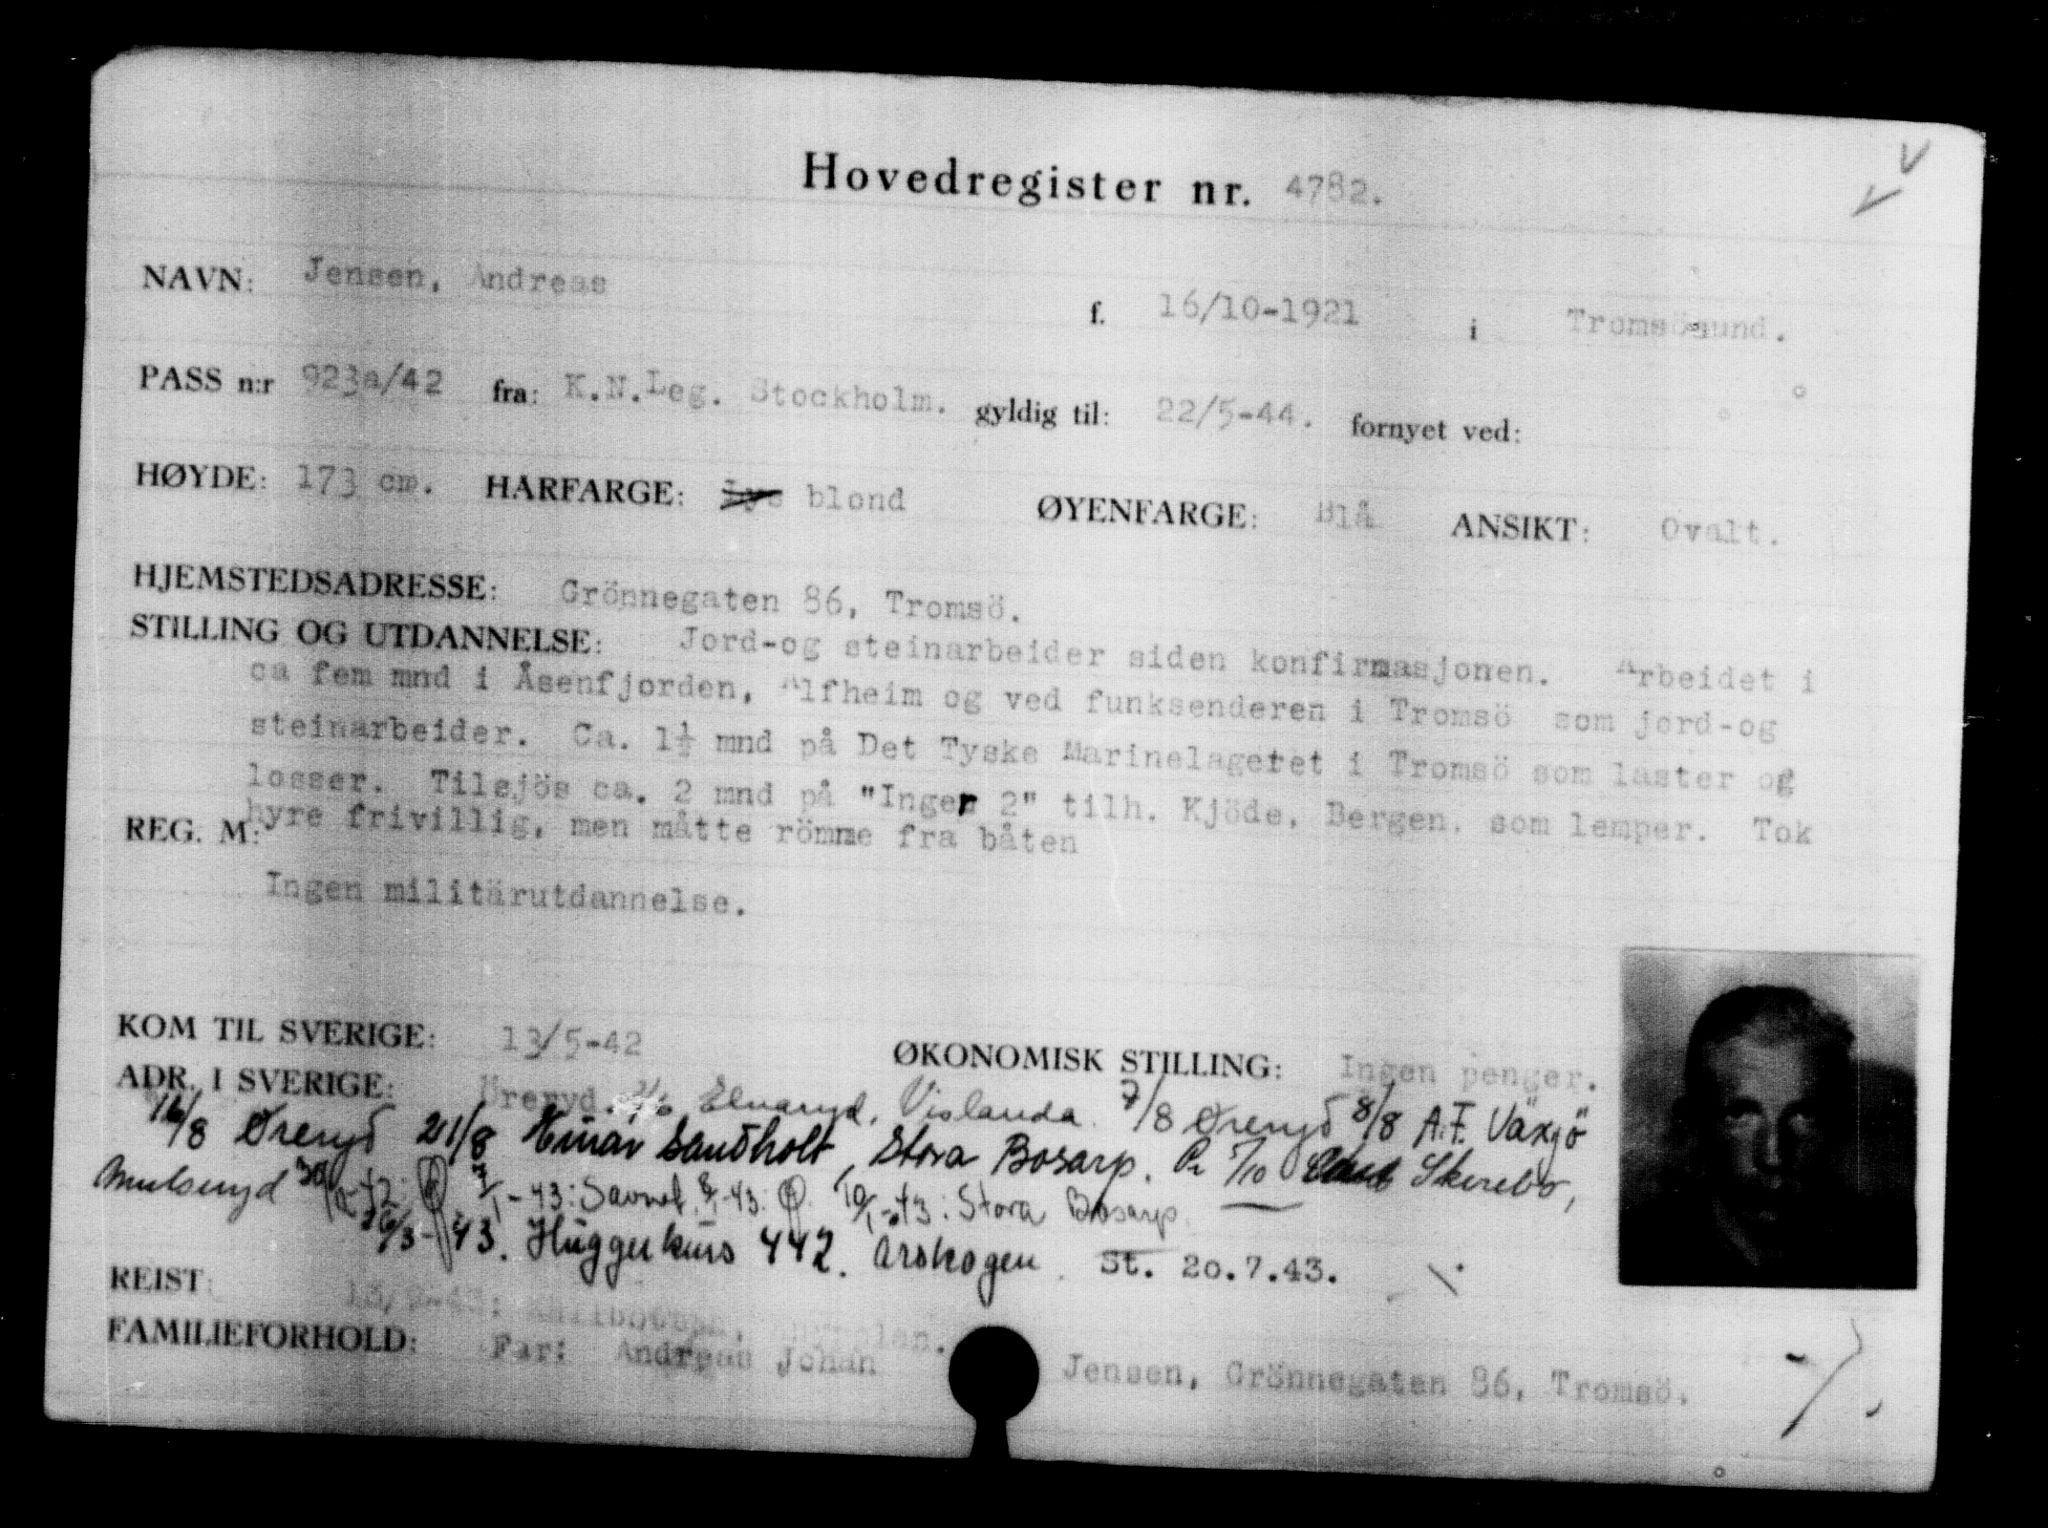 Hovedregister nr. 4782.
NAVN: Jensen, Andreas f. 16/10-1921 i Tromsösund.
PASS n:r 923a/42 fra: K.N.Leg. Stockholm. gyldig til: 22/5-44. fornyet ved:
HØYDE: 173 cm. HARFARGE: Lys blond ØYENFARGE: Blå ANSIKT: Ovalt.
HJEMSTEDSADRESSE: Grönnegaten 86, Tromsö.
STILLING OG UTDANNELSE: Jord-og steinarbeider siden konfirmasjonen. Arbeidet i
ca fem mnd i Åsenfjorden, Alfheim og ved funksenderen i Tromsö som jord-og
steinarbeider. Ca. 1½ mnd på Det Tyske Marinelageret i Tromsö som laster og
losser. Tilsjös ca. 2 mnd på "Inger 2" tilh. Kjöde, Bergen, som lemper. Tok
REG. M: hyre frivillig, men måtte römme fra båten
Ingen militärutdannelse.
KOM TIL SVERIGE: 13/5-42 ØKONOMISK STILLING: Ingen penger.
ADR. I SVERIGE: Öreryd. Elnaryd, Vislanda. 7/8 Øreryd 8/8 A.F. Växjö
16/8 Øreryd 21/8 Einar Sandholt, Stora Bosarp. 5/10 Skirebo,
Mulseryd 7/1-43: Savnet. 8/1-43: 10/1-43: Stora Bosarp.
26/3-43. Huggerkurs 442. Orshogen. St. 20.7.43.
REIST:
FAMILIEFORHOLD: Far: Andreas Johan Jensen, Grönnegaten 86, Tromsö.